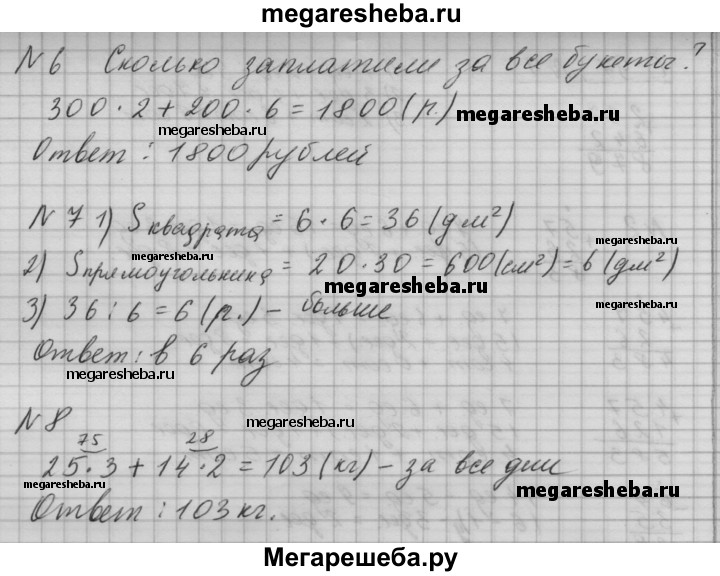 megaresheba.ru
№6 Сколько заплатили за все букеты?
300 · 2 + 200 · 6 = 1800 (р.) megaresheba.ru
megaresheba.ru
Ответ: 1800 рублей
№7 1) Sквадрата = 6 · 6 = 36 (дм²)
megaresheba.ru megaresheba.ru
2) Sпрямоугольника = 20 · 30 = 600 (см²) = 6 (дм²)
megaresheba.ru megaresheba.ru
3) 36 : 6 = 6 (р.) – больше
Ответ: в 6 раз
megaresheba.ru
№8 megaresheba.ru
75 28
25 · 3 + 14 · 2 = 103 (кг) – за все дни
megaresheba.ru
Ответ: 103 кг.
Мегарешеба.ру